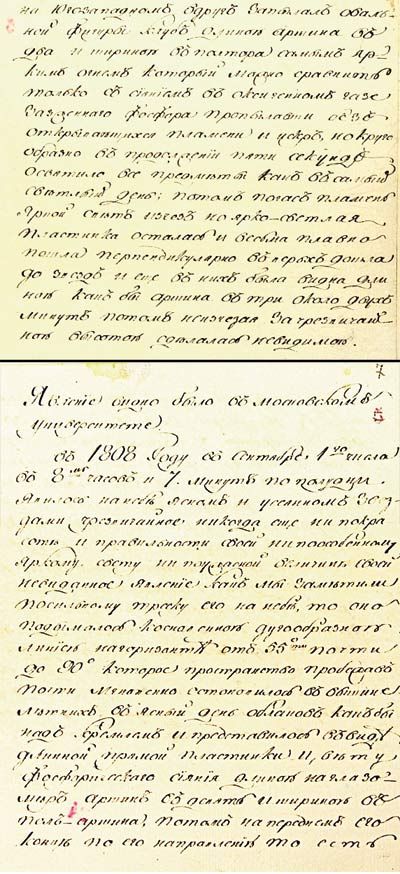 на Югозападномъ вдругъ запылалъ оваль-
ной фигуры клубъ длиною аршина въ
два и шириною въ полтора самымъ яр-
кимъ огнемъ который можно сравнить
только съ сіяніемъ въ оксигенномъ газе
зажженнаго фосфора пропылавши безъ
открывающихся пламени и искръ, но круго
образно въ продолженіи пяти секундъ
Осветило все предметы какъ въ самый
светлый день; потомъ погасъ пламень
ярной светъ изчезъ но ярко-светлая
Пластинка осталась и весьма плавно
пошла перпендикулярно въ верьхъ дошла
до звездъ и еще въ нихъ была видна дли
ною какъ бы аршина въ три около двухъ
минутъ потомъ неизчезая за чрезвычай-
ною высотою сделалась невидимою.
Явленіе видно было въ Московскомъ
университете
въ 1808 Году въ Сентябре 1го числа
въ 8мь часовъ и 7. Минутъ по полудни
Явилось на небе Ясномъ и усеяномъ звез-
дами чрезвычайное никогда еще ни по кра
соте и правильности своей ни по особенному
Яркому свету ни по ужасной величине своей
невиданное Явленіе; какъ мы заметили
по сильному треску его на небе, то оно
подымалось косвенною дугообразною
линіею на горизонте отъ 55ти почти
до 90° которое пространство пробежавъ
почти Мгновенно остановилось въ вышине
летнихъ въ ясный день облаковъ какъ бы
надъ Кремлемъ и представилось въ виде
длинной прямой пластинки и, въ ту
фосфорическаго сіянія длиною на глазо-
меръ аршинъ въ девять и шириною въ
полъ-аршина; потомъ на переднемъ его
концу по его направленію то есть